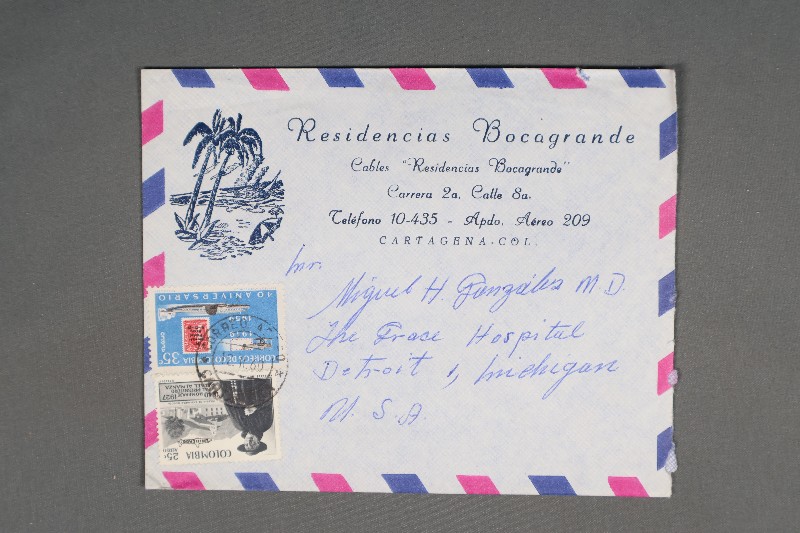 Residencias Bocagrande
Cables "Residencias Bocagrande"
Carrera 2a. Calle 8a.
Teléfono 10-435 - Apdo. Aéreo 209
CARTAGENA-COL.
Miguel H. González M.D.
The Grace Hospital
Detroit 1, Michigan
U.S.A.
40 ANIVERSARIO
1919
1959
CORREOS DE COLOMBIA 35c
CORREO AEREO
COLOMBIA
25c